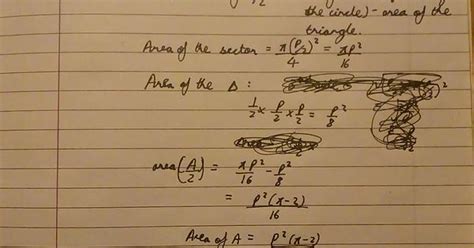 the circle) - area of the
triangle.
Area of the sector = π(P/2)²/4 = πP²/16
Area of the Δ :
1/2 × P/2 × P/2 = P²/8
area(A/2) = πP²/16 - P²/8
= P²(π-2)/16
Area of A = P²(π-2)